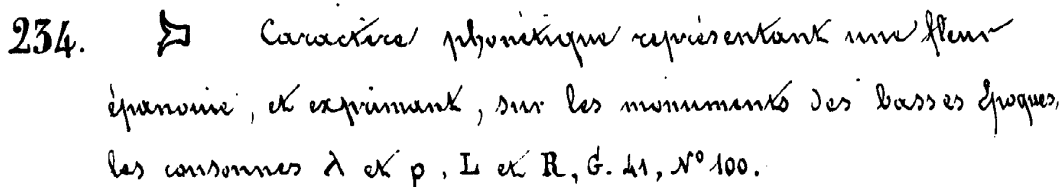 234. Caractère phonétique représentant une fleur
épanouie, et exprimant, sur les monuments des basses époques,
les consonnes λ et ρ, L et R, G. 41, Nº 100.